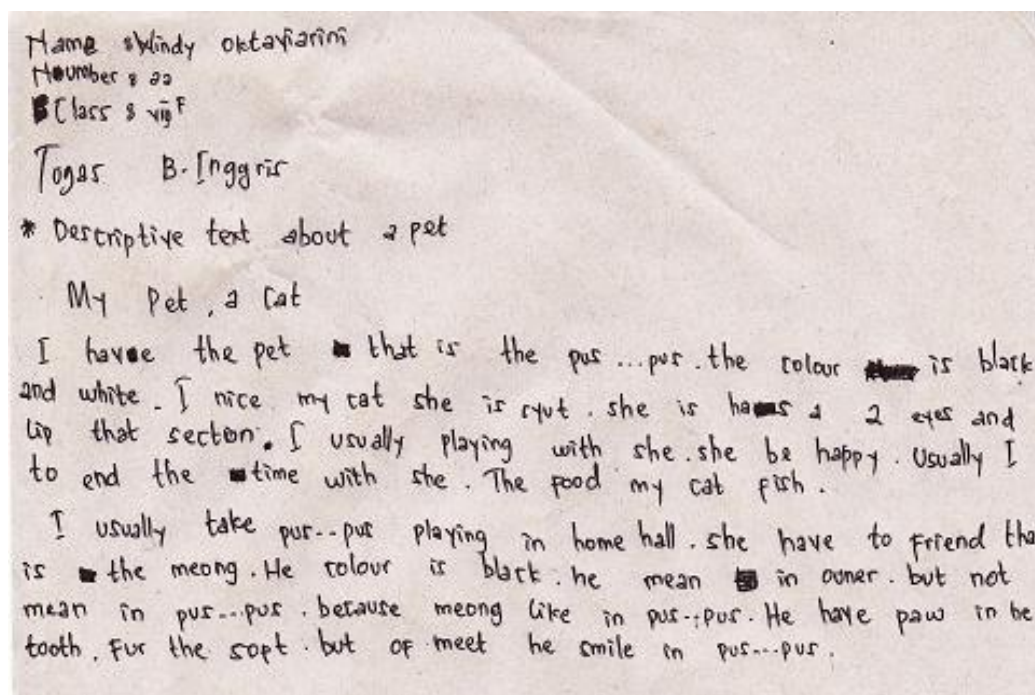 Name : Windy oktaviarini
Nounber : 22
Class : VIII F
Togas B. Inggris
* Descriptive text about a pet
My Pet, a Cat
I havee the pet that is the pus ...pus. the colour is black
and white. I nice my cat she is cyut. she is has a 2 eyes and
Lip that section. I usually playing with she. she be happy. Usually I
to end the time with she. The food my cat fish.
I usually take pus...pus playing in home hall. she have to friend tha
is the meong. He colour is black. he mean in owner. but not
mean in pus...pus. because meong like in pus...pus. He have paw in be
tooth. Fur the soft. but of meet he smile in pus...pus.